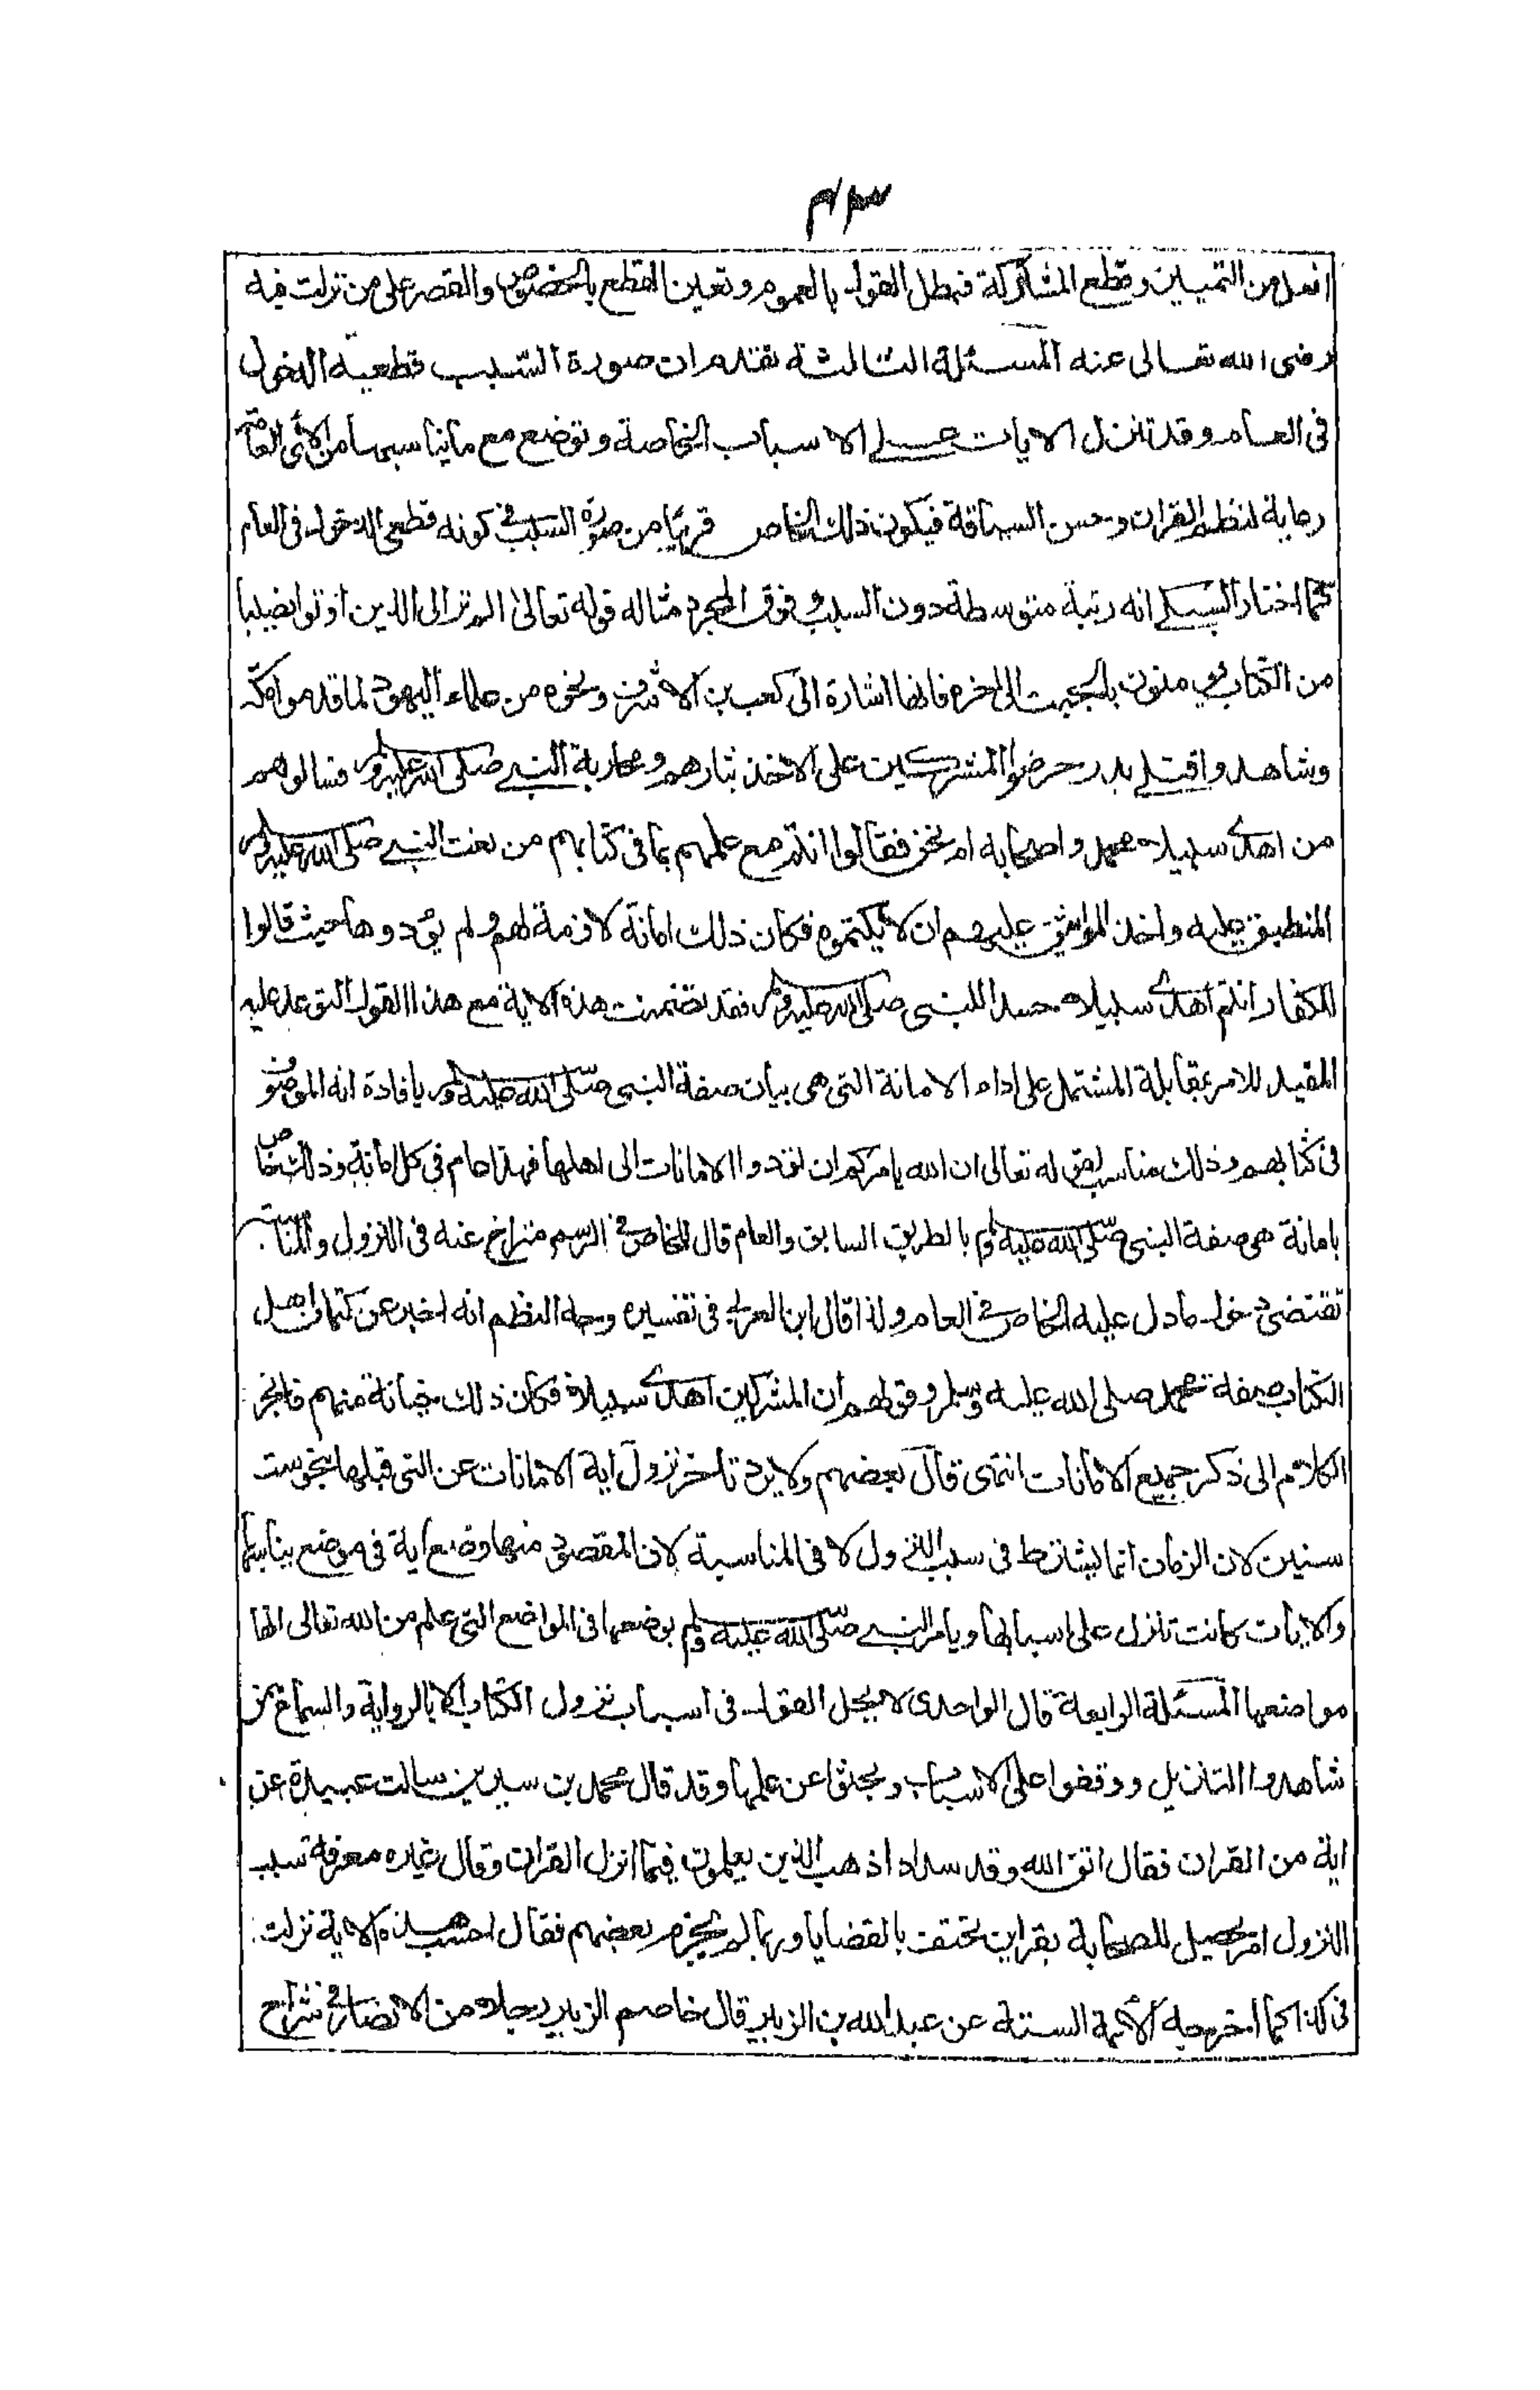 افعل من التمييز وقطع المشاركة فبطل القول بالعموم وتعين القطع بالخصوص والقصر على من نزلت فيه
رضى الله تعالى عنه المسئلة الثالثة تقدم ان صورة السبب قطعية الدخول
فى العام وقد تنزل الايات على الاسباب الخاصة وتوضع مع ما يناسبها من الآى العامة
رعاية لنظم القران وحسن السياقة فيكون ذلك الخاص قريبا من صورة السبب فى كونه قطعى الدخول فى العام
كما اختار السبكى انه رتبة متوسطة دون السبب وفوق المجرد مثاله قوله تعالى الم تر الى الذين اوتوا نصيبا
من الكتاب يومنون بالجبت الى اخره فانها اشارة الى كعب بن الاشرف ونحوه من علماء اليهود لما قدموا مكة
وشاهدوا قتلى بدر حرضوا المشركين على الاخذ بثارهم ومحاربة النبى صلى الله عليه وسلم فسالوهم
من اهدى سبيلا محمد واصحابه ام نحن فقالوا انتم مع علمهم بما فى كتابهم من نعت النبى صلى الله عليه وسلم
المنطبق عليه واخذ المواثيق عليهم ان لا يكتموه فكان ذلك امانة لازمة لهم ولم يؤدوها حيث قالوا
للكفار انتم اهدى سبيلا حسدا للنبى صلى الله عليه وسلم فقد تضمنت هذه الاية مع هذا القول التوعد عليه
المفيد للامر بمقابلة المشتمل على اداء الامانة التى هى بيان صفة النبى صلى الله عليه وسلم بافادة انه الموصوف
فى كتابهم وذلك مناسب لقوله تعالى ان الله يامركم ان تؤدوا الامانات الى اهلها فهذا عام فى كل امانة وذلك خاص
بامانة هى صفة النبى صلى الله عليه وسلم بالطريق السابق والعام قال للخاص فى الرسم متراخ عنه فى النزول والمناسبة
تقتضى دخول ما دل عليه الخاص فى العام ولذا قال ابن العربى فى تفسيره وجه النظم انه اخبر عن كتمان اهل
الكتاب صفة محمد صلى الله عليه وسلم وقولهم ان المشركين اهدى سبيلا فكان ذلك خيانة منهم فانجر
الكلام الى ذكر جميع الامانات انتهى قال بعضهم ولا يرد تاخر نزول آية الامانات عن التى قبلها بنحو ست
سنين لان الزمان انما يشترط فى سبب النزول لا فى المناسبة لان المقصود منها وضع اية فى موضع يناسبها
والايات كانت تنزل على اسبابها ويامر النبى صلى الله عليه وسلم بوضعها فى المواضع التى علم من الله تعالى انها
مواضعها المسئلة الرابعة قال الواحدى لا يحل القول فى اسباب نزول الكتاب الا بالرواية والسماع ممن
شاهدوا التنزيل ووقفوا على الاسباب وبحثوا عن علمها وقد قال محمد بن سيرين سالت عبيدة عن
اية من القران فقال اتق الله وقد سدادا ذهب الذين يعلمون فيما انزل القران وقال غيره معرفة سبب
النزول امر يحصل للصحابة بقراين تحتف بالقضايا وربما لم يجزم بعضهم فقال احسب هذه الاية نزلت
فى كذا كما اخرجه الأئمة الستة عن عبد الله بن الزبير قال خاصم الزبير رجلا من الانصار فى شراج